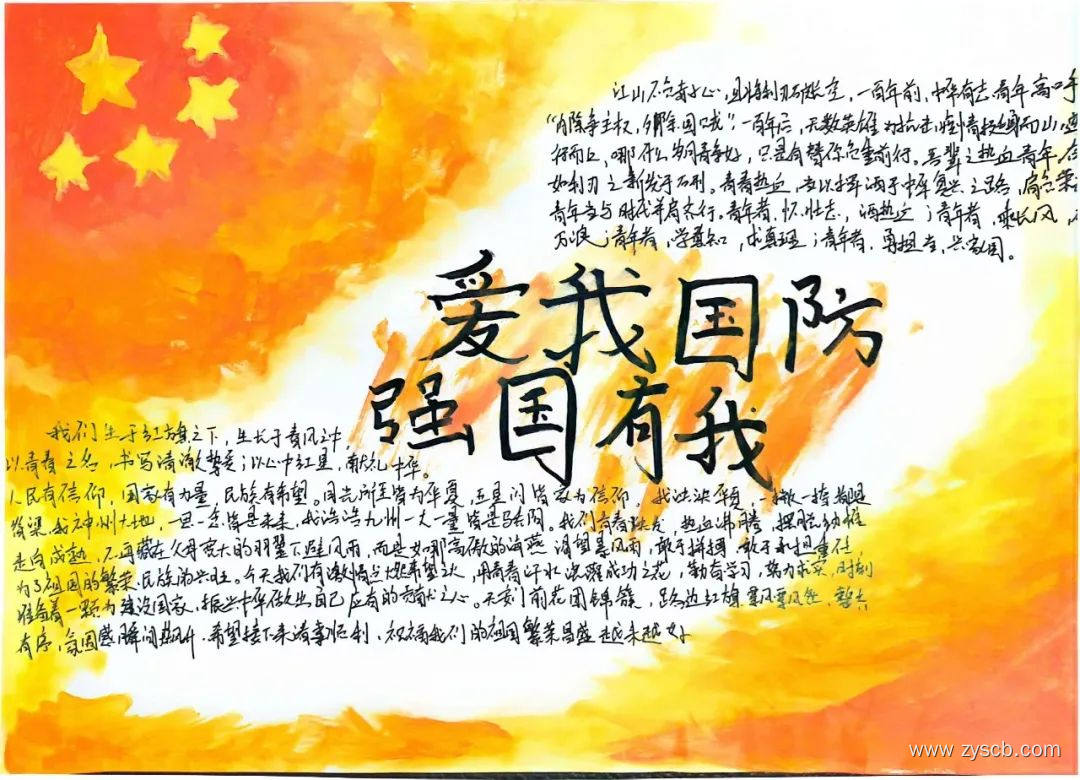 江山不负赤心,且将利刃破长空,一百年前,中华有志青年高呼
"外争主权,内除国贼",一百年后,无数英雄为抗击
行而上,哪什么岁月静好,只是有替你负重前行。吾辈之热血青年,
如利刃之新发于硎。青春热血,应以挥洒于中华复兴之路,肩负
青年应与时代并肩前行。青年者,怀壮志,洒热血;青年者,乘长风,
万浪;青年者,学真知,求真理;青年者,勇担当,兴家国。
爱我国防
强国有我
我们生于红旗之下,生长于春风之中,
以青春之名,书写清澈挚爱;以心中红星,献礼中华。
人民有信仰,国家有力量,民族有希望。目光所至皆为华夏,五星闪耀皆为信仰,我泱泱华夏,一撇一捺皆是
脊梁,我神州大地,一思一念皆是未来,我浩浩九州一丈一量皆是乐间。我们青春跃发,热血沸腾,摆脱幼稚
走向成熟,不再藏在父母宽大的羽翼下避风雨,而是如那高傲的海燕渴望暴风雨,敢于拼搏,敢于承担重任,
为了祖国的繁荣,民族的兴旺。今天我们有激情点燃希望之火,用青春汗水浇灌成功之花,勤奋学习,努力求实,时刻
准备着一颗为建设国家,振兴中华做出自己应有的贡献之心。天安门前花团锦簇,路边红旗
有序,氛围感瞬间飙升,希望接下来诸事顺利,祝福我们的祖国繁荣昌盛越来越好
www.zyscb.com